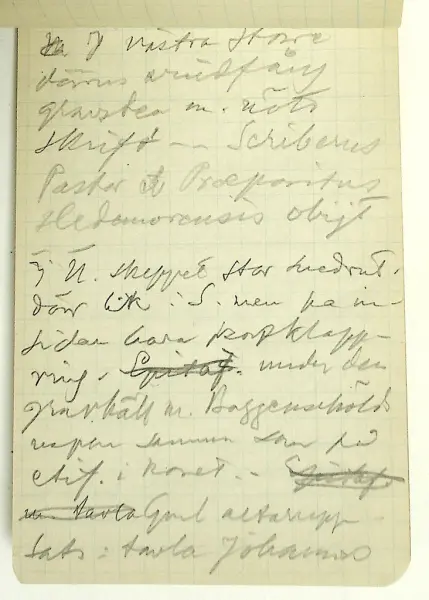 I västra stora
dörrens vindfång
gravsten m. nött
skrift -- Scriberus
Pastor & Præpositus
Hedemorensis obijt
I N. skeppet stor
dörr lik i S. men på in-
sidan bara
ring. Epitaf. under den
gravhäll m. Baggensköld
vapen samma som på
epit. i koret. - Epitaf
m tavla Gml altarupp-
sats: tavla Johannes